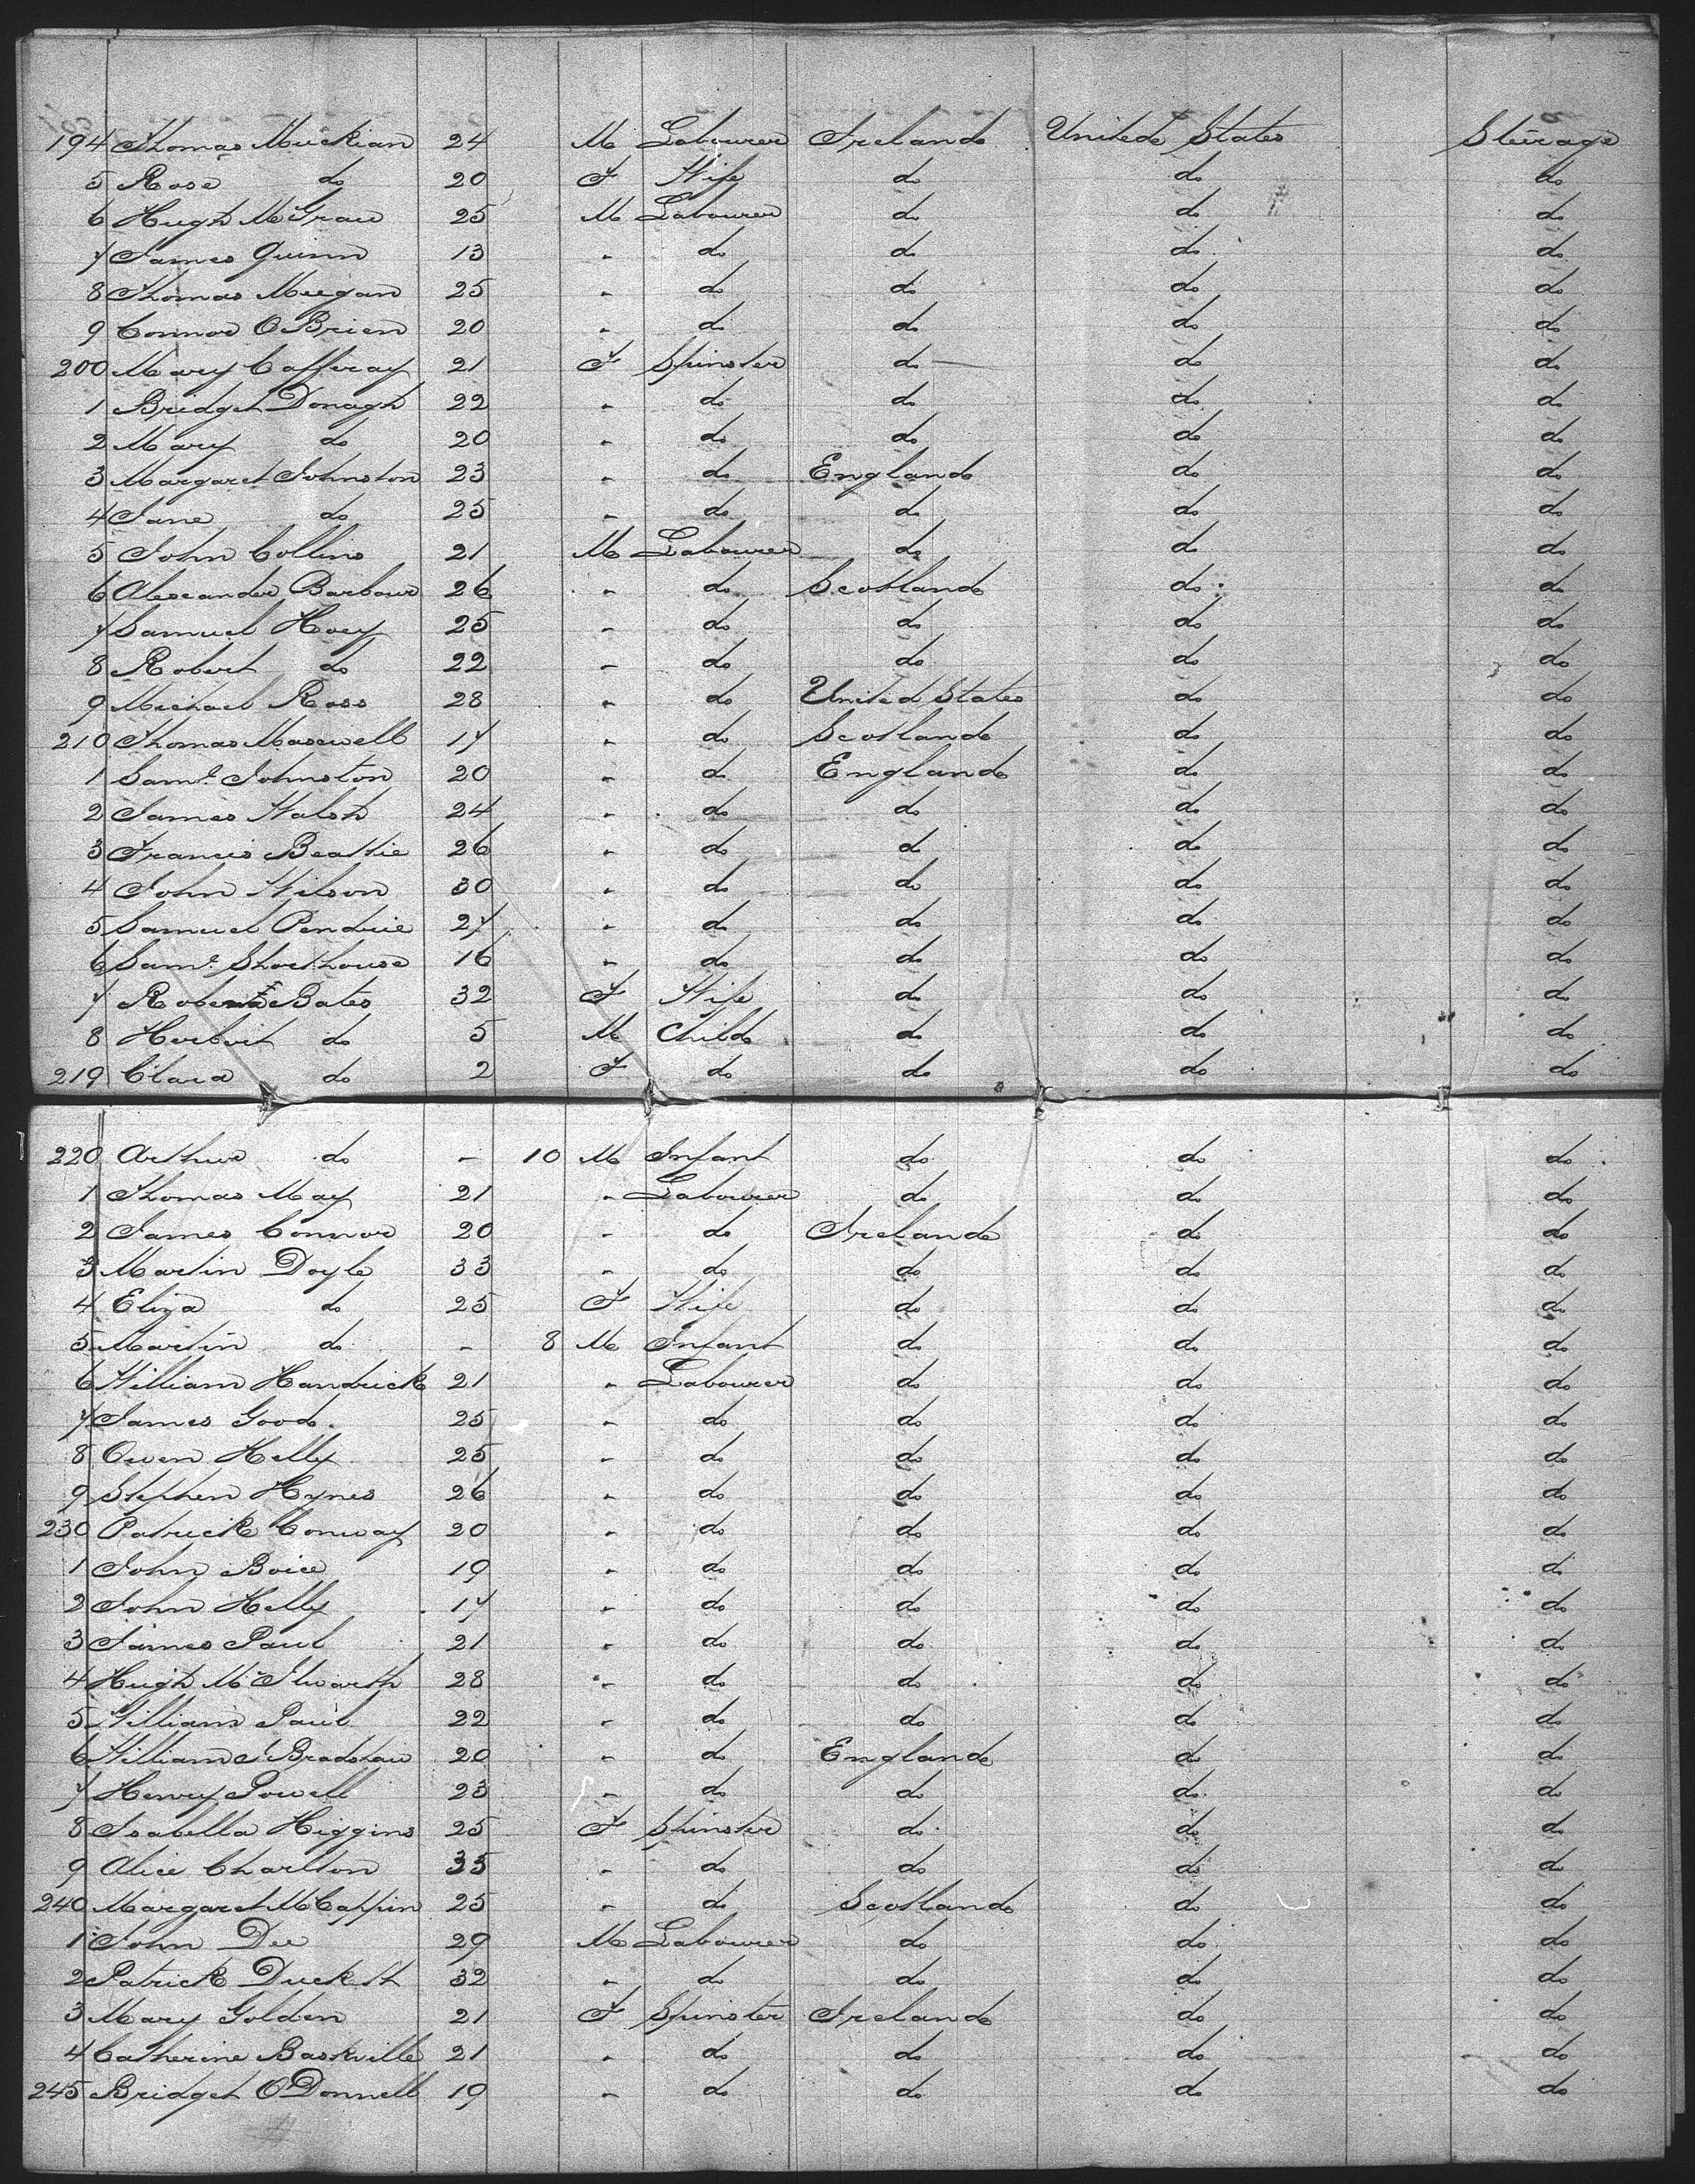 194 Thomas Muckian 24 M Labourer Ireland United States Steerage
5 Rose do 20 F Wife do do do
6 Hugh McGraw 25 M Labourer do do do
7 James Quinn 13 " do do do do
8 Thomas Meegan 25 " do do do do
9 Connor O'Brien 20 " do do do do
200 Mary Cafferay 21 F Spinster do do do
1 Bridget Donagh 22 " do do do do
2 Mary do 20 " do do do do
3 Margaret Johnston 23 " do England do do
4 Jane do 25 " do do do do
5 John Collins 21 M Labourer do do do
6 Alexander Barbour 26 " do Scotland do do
7 Samuel Hoey 25 " do do do do
8 Robert do 22 " do do do do
9 Michael Ross 28 " do United States do do
210 Thomas Maxwell 17 " do Scotland do do
1 Saml Johnston 20 " do England do do
2 James Walsh 24 " do do do do
3 Francis Beattie 26 " do do do do
4 John Wilson 30 " do do do do
5 Samuel Pendrie 27 " do do do do
6 Saml Shorthouse 16 " do do do do
7 Bates 32 F Wife do do do
8 Herbert do 5 M Child do do do
219 Clara do 2 F do do do do
220 Arthur do - 10 M Infant do do do
1 Thomas May 21 " Labourer do do do
2 James Connor 20 " do Ireland do do
3 Martin Doyle 33 " do do do do
4 Eliza do 25 F Wife do do do
5 Martin do - 8 M Infant do do do
6 William Handrick 21 " Labourer do do do
7 James Good 25 " do do do do
8 Owen Kelly 25 " do do do do
9 Stephen Hynes 26 " do do do do
230 Patrick Conway 20 " do do do do
1 John Boice 19 " do do do do
2 John Kelly 17 " do do do do
3 James Paul 21 " do do do do
4 Hugh 28 " do do do do
5 William Paul 22 " do do do do
6 William J Bradshaw 20 " do England do do
7 Henry Powell 23 " do do do do
8 Isabella Higgins 25 F Spinster do do do
9 Alice Charlton 35 " do do do do
240 Margaret McCappin 25 " do Scotland do do
1 John Dee 29 M Labourer do do do
2 Patrick Duckett 32 " do do do do
3 Mary Golden 21 F Spinster Ireland do do
4 Catherine Baskville 21 " do do do do
245 Bridget O'Donnell 19 " do do do do